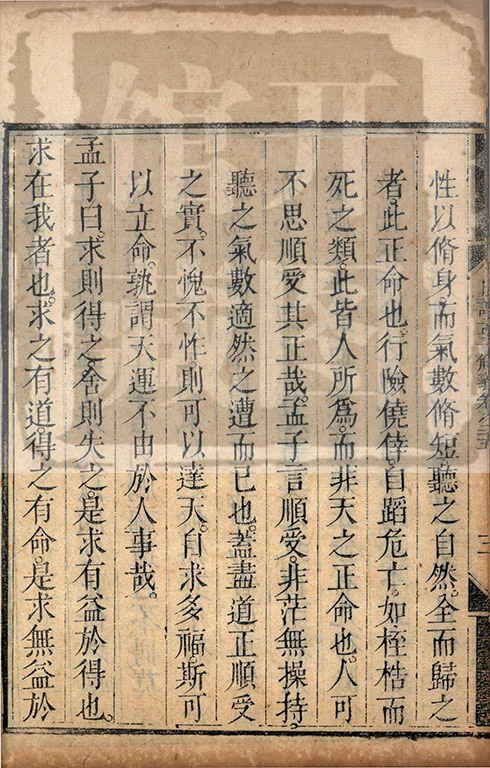 性以脩身。而氣數脩短。聽之自然。全而歸之
者。此正命也。行險僥倖。自蹈危亡。如桎梏而
死之類。此皆人所爲。而非天之正命也。人可
不思順受其正哉。孟子言順受。非茫無操持。
聽之氣數適然之遭而已也。蓋盡道正順受
之實。不愧不怍則可以達天。自求多福斯可
以立命。孰謂天運不由於人事哉。
孟子曰。求則得之。舍則失之。是求有益於得也。
求在我者也。求之有道。得之有命。是求無益於